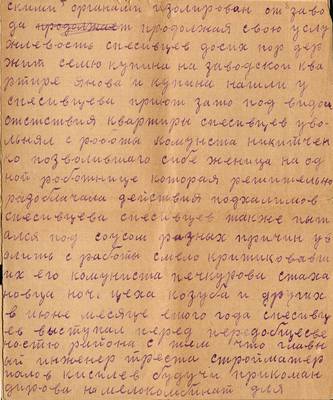 скими органами изолирован от заво
да продолжает продолжая свою услу
жливость спесивцев до сих пор дер
жит семю купина на заводской ква
ртире янова и купина нашли у
спесивцева приют зато под видом
отстствия квартиры спесивцев уво
льнял с работы комуниста никитчен
ко позволившаго сибе женица на од
ной работнице которая решительно
разоблачала действия подхалимов
спесивцева спесивцев также пыт
ался под соусом разных причин уд
алить с работы смело критиковавш
их его комуниста печкурова стаха
новца ноч. цеха козуба и других
в июне месяце етого года спесивц
ев выступал перед передобществе
ностю района с тем что главн
ый инженер треста строймате
иалов кисилев будучи прикоман
дирован на мелокомбинат для